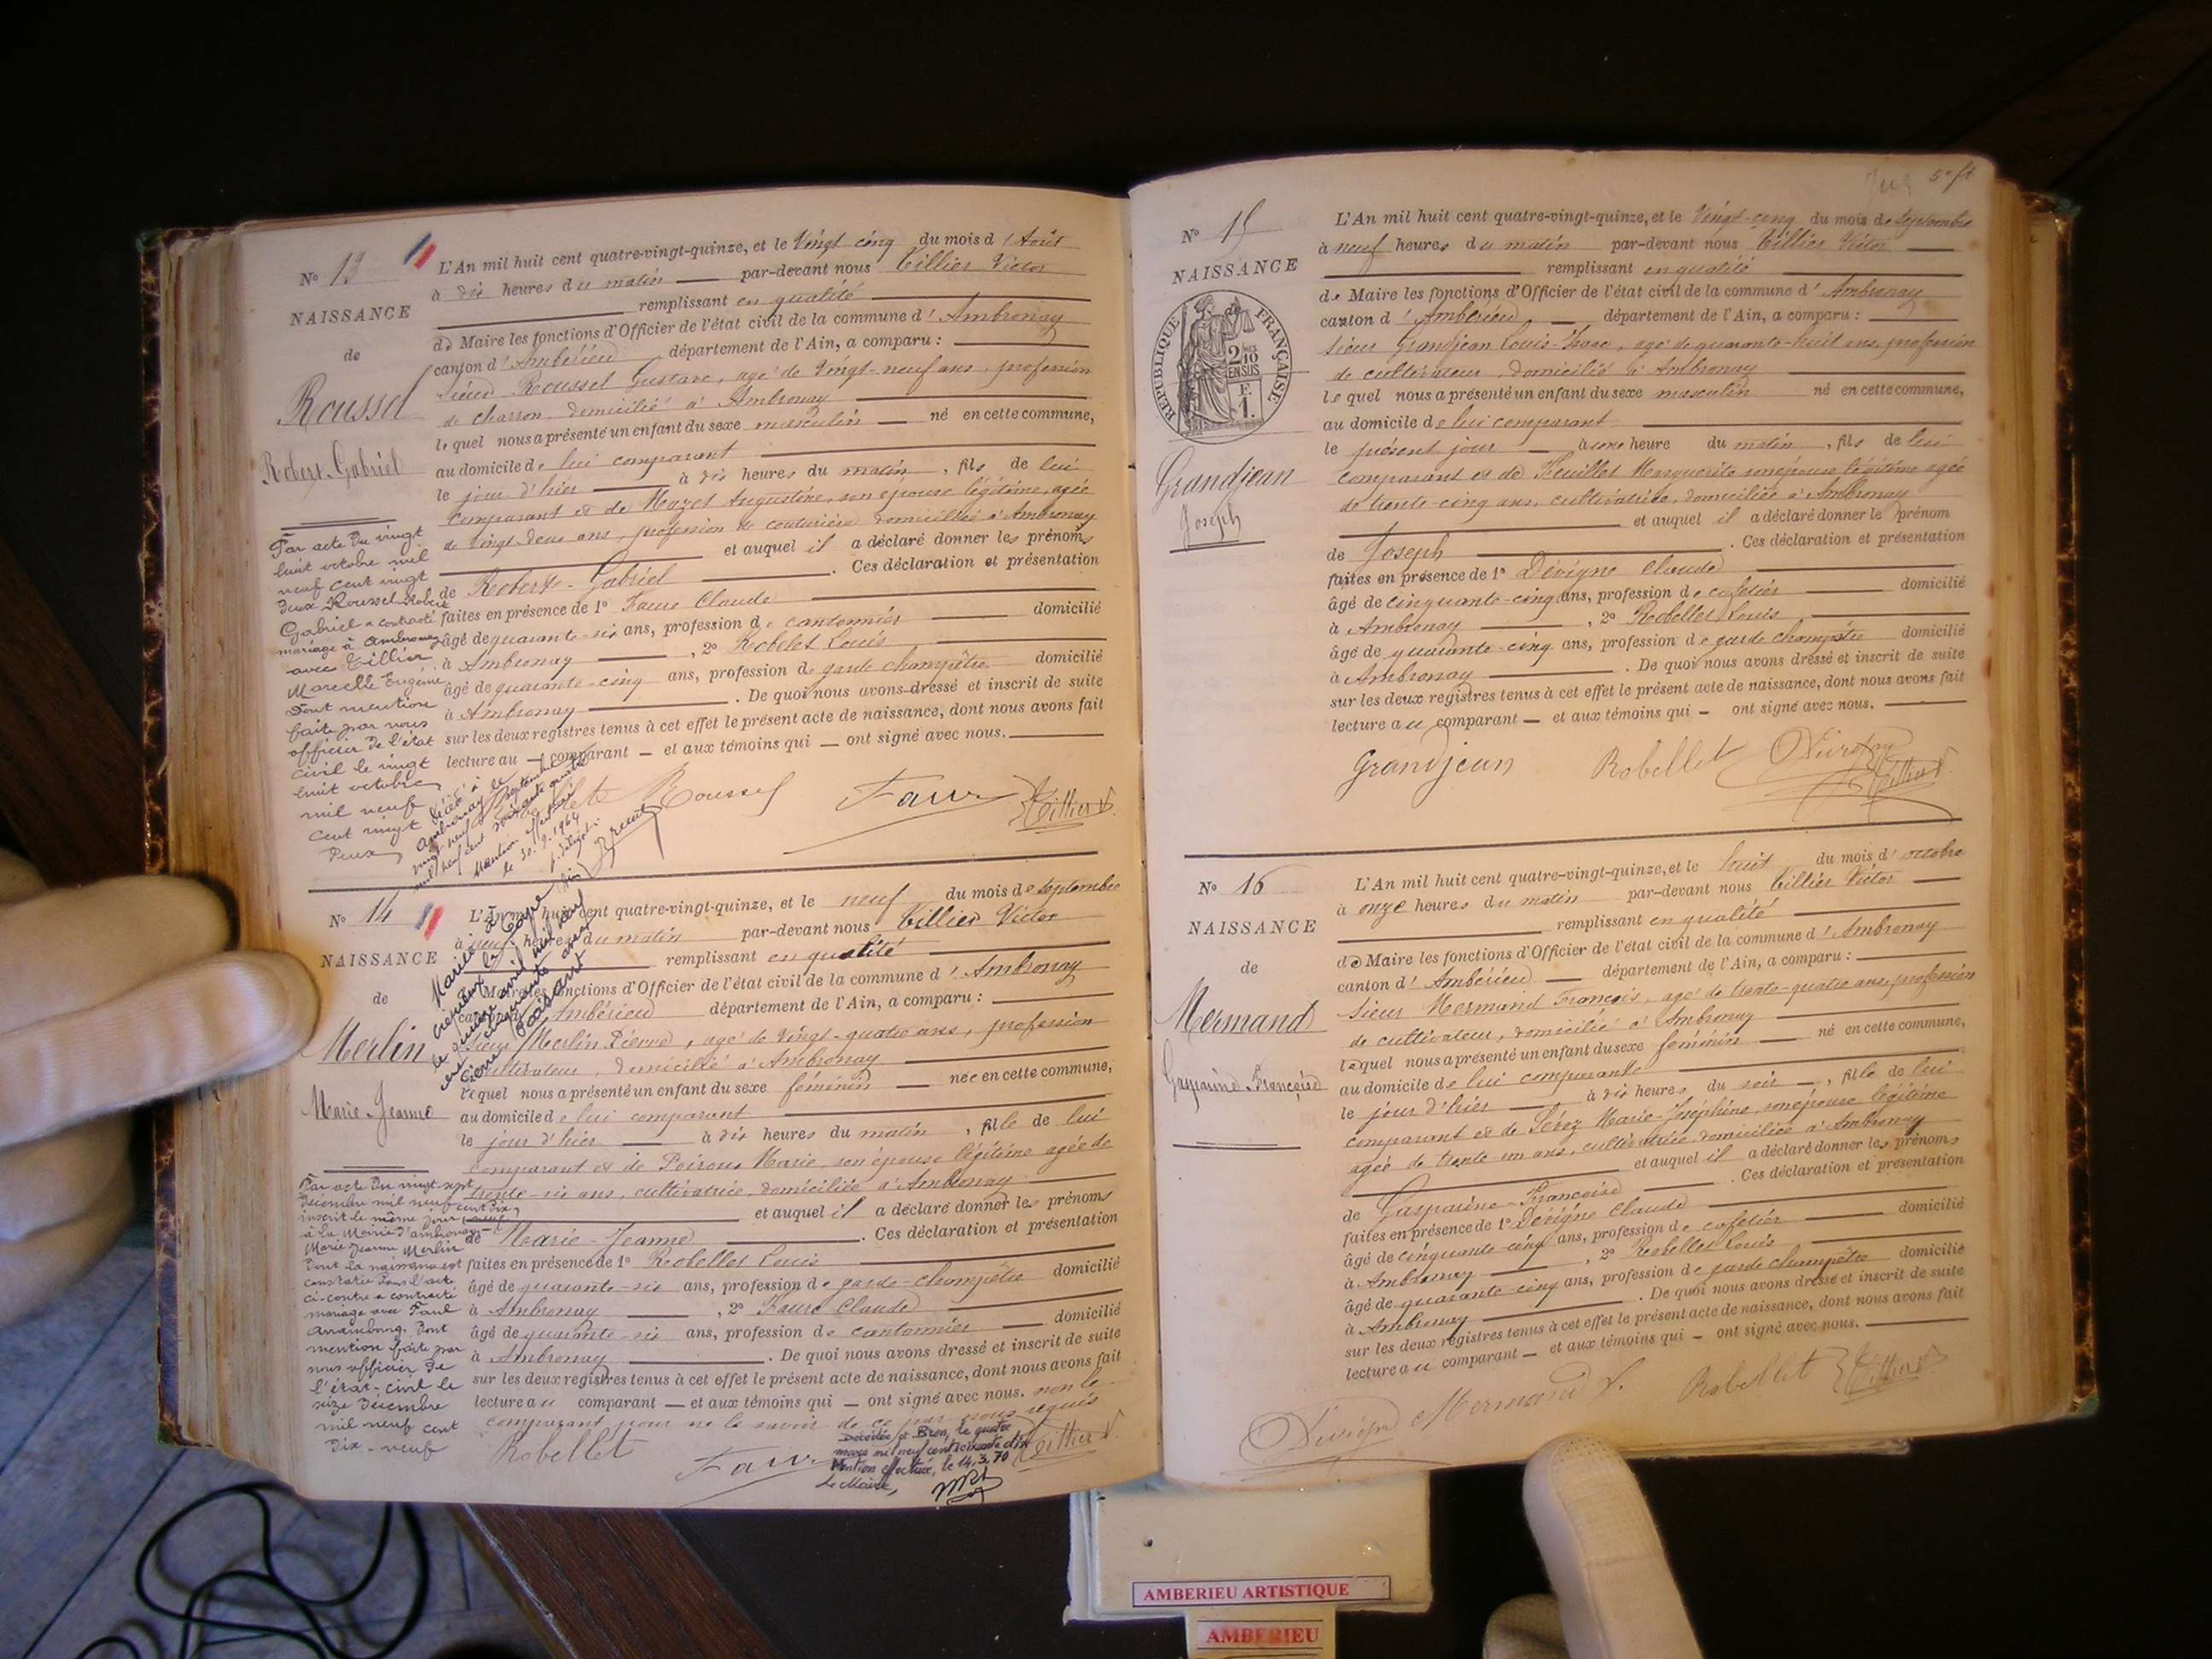 N° 13
NAISSANCE
de
Roussel
Robert-Gabriel
L'An mil huit cent quatre-vingt-quinze, et le Vingt-cinq du mois d'Août
à dix heures du matin par-devant nous Tillier Victor
remplissant en qualité
de Maire les fonctions d'Officier de l'état civil de la commune d'Ambronay
canton d'Ambérieu département de l'Ain, a comparu :
Sieur Roussel Gustave, agé de Vingt-neuf ans, profession
de charron, domicilié à Ambronay
lequel nous a présenté un enfant du sexe masculin né en cette commune,
au domicile de lui comparant
le jour d'hier à dix heures du matin, fils de lui
comparant et de Mazet Augustine, son épouse légitime, agée
de Vingt-deux ans, profession de couturière domiciliée à Ambronay
et auquel il a déclaré donner les prénoms
de Robert-Gabriel. Ces déclaration et présentation
faites en présence de 1° Faure Claude
âgé de quarante-six ans, profession de cantonnier domicilié
à Ambronay, 2° Robelet Louis
âgé de quarante-cinq ans, profession de garde champêtre domicilié
à Ambronay. De quoi nous avons dressé et inscrit de suite
sur les deux registres tenus à cet effet le présent acte de naissance, dont nous avons fait
lecture au comparant et aux témoins qui ont signé avec nous.
Roussel Faure Tillier V.
Par acte du vingt
huit octobre mil
neuf cent vingt
deux Roussel Robert
Gabriel a contracté
mariage à Ambronay
avec Tillier
Marcelle Eugénie
Dont mention
faite par nous
officier de l'état
civil le vingt
huit octobre
mil neuf
cent vingt
deux
Décédé à
Ambronay le
vingt neuf septembre
mil neuf cent soixante quatre
Mention effectuée
le 30.9.1964
N° 14
NAISSANCE
de
Merlin
Marie-Jeanne
L'An mil huit cent quatre-vingt-quinze, et le neuf du mois de septembre
à neuf heures du matin par-devant nous Tillier Victor
remplissant en qualité
de Maire les fonctions d'Officier de l'état civil de la commune d'Ambronay
canton d'Ambérieu département de l'Ain, a comparu :
Sieur Merlin Pierre, agé de Vingt-quatre ans, profession
cultivateur, domicilié à Ambronay
lequel nous a présenté un enfant du sexe féminin née en cette commune,
au domicile de lui comparant
le jour d'hier à dix heures du matin, fille de lui
comparant et de Peiroux Marie, son épouse légitime agée de
trente-six ans, cultivatrice, domiciliée à Ambronay
et auquel il a déclaré donner les prénoms
de Marie-Jeanne. Ces déclaration et présentation
faites en présence de 1° Robellet Louis
âgé de quarante-six ans, profession de garde-champêtre domicilié
à Ambronay, 2° Faure Claude
âgé de quarante-six ans, profession de cantonnier domicilié
à Ambronay. De quoi nous avons dressé et inscrit de suite
sur les deux registres tenus à cet effet le présent acte de naissance, dont nous avons fait
lecture au comparant et aux témoins qui ont signé avec nous. non le
comparant pour ne le savoir de ce par nous requis
Robellet Faure Tillier V.
Mariée à
le quinze avril mil neuf
cent cinquante avec
Pierre
Par acte du vingt sept
décembre mil neuf cent dix
inscrit le même jour
à la Mairie d'Ambronay
Marie Jeanne Merlin
dont la naissance est
constatée dans l'acte
ci-contre a contracté
mariage avec Paul
Arrambourg. Dont
mention faite par
nous officier de
l'état-civil le
seize décembre
mil neuf cent
dix-neuf
Décédée à Bron, le quatre
mars mil neuf cent soixante dix
Mention effectuée, le 14.3.70
Le Maire,
5e ft
N° 15
NAISSANCE
RÉPUBLIQUE FRANÇAISE
2/10 EN SUS
F.
1.
Grandjean
Joseph
L'An mil huit cent quatre-vingt-quinze, et le Vingt-cinq du mois de septembre
à neuf heures du matin par-devant nous Tillier Victor
remplissant en qualité
de Maire les fonctions d'Officier de l'état civil de la commune d'Ambronay
canton d'Ambérieu département de l'Ain, a comparu :
Sieur Grandjean Louis-Isaac, agé de quarante-huit ans, profession
de cultivateur, domicilié à Ambronay
lequel nous a présenté un enfant du sexe masculin né en cette commune,
au domicile de lui comparant
le présent jour à une heure du matin, fils de lui
comparant et de Feuillet Marguerite son épouse légitime agée
de trente-cinq ans, cultivatrice, domiciliée à Ambronay
et auquel il a déclaré donner le prénom
de Joseph. Ces déclaration et présentation
faites en présence de 1° Dévigne Claude
âgé de cinquante-cinq ans, profession de cafetier domicilié
à Ambronay, 2° Robellet Louis
âgé de quarante-cinq ans, profession de garde champêtre domicilié
à Ambronay. De quoi nous avons dressé et inscrit de suite
sur les deux registres tenus à cet effet le présent acte de naissance, dont nous avons fait
lecture au comparant et aux témoins qui ont signé avec nous.
Grandjean Robellet Tillier V.
N° 16
NAISSANCE
de
Mermand
Gasparine-Françoise
L'An mil huit cent quatre-vingt-quinze, et le huit du mois d'octobre
à onze heures du matin par-devant nous Tillier Victor
remplissant en qualité
de Maire les fonctions d'Officier de l'état civil de la commune d'Ambronay
canton d'Ambérieu département de l'Ain, a comparu :
Sieur Mermand François, agé de trente-quatre ans, profession
de cultivateur, domicilié à Ambronay
lequel nous a présenté un enfant du sexe féminin né en cette commune,
au domicile de lui comparant
le jour d'hier à dix heures du soir, fille de lui
comparant et de Marie-Joséphine, son épouse légitime
agée de trente un ans, cultivatrice domiciliée à Ambronay
et auquel il a déclaré donner les prénoms
de Gasparine-Françoise. Ces déclaration et présentation
faites en présence de 1° Dévigne Claude
âgé de cinquante-cinq ans, profession de cafetier domicilié
à Ambronay, 2° Robellet Louis
âgé de quarante-cinq ans, profession de garde champêtre domicilié
à Ambronay. De quoi nous avons dressé et inscrit de suite
sur les deux registres tenus à cet effet le présent acte de naissance, dont nous avons fait
lecture au comparant et aux témoins qui ont signé avec nous.
Mermand f. Robellet Tillier V.
AMBERIEU ARTISTIQUE
AMBERIEU